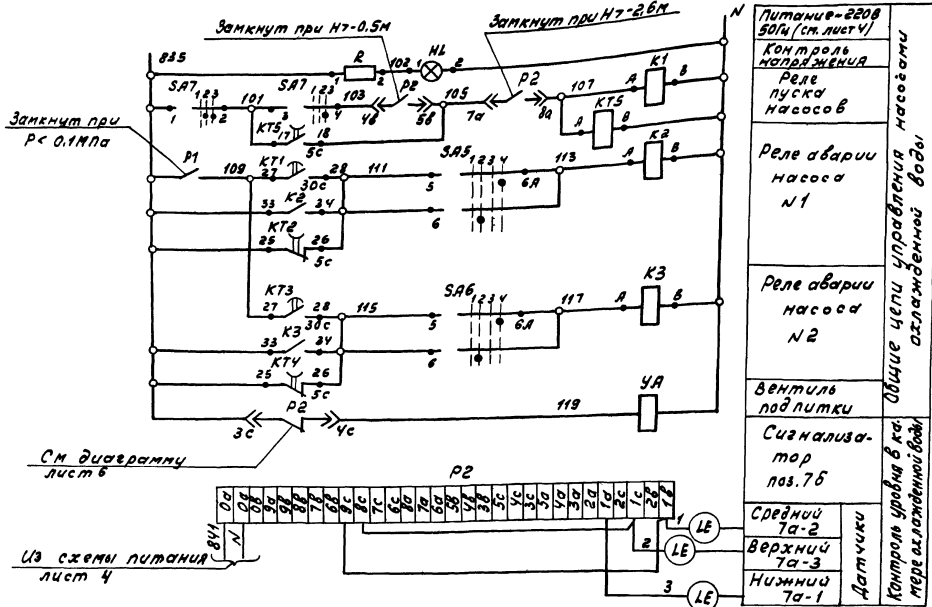 Замкнут при Нт-0,5м
Замкнут при Нт-2,6м
N
835
R
1
2
102
1
HL
2
SA7
1 2 3
1
2
101
3
SA7
1 2 3
4
103
4в
P2
5в
105
7а
P2
8а
107
A
K1
B
KT5
17
18
5с
A
KT5
B
Замкнут при
P< 0,1МПа
P1
109
KT1
27
28
30с
111
5
SA5
1 2 3 4
6А
113
A
K2
B
K2
33
34
6
KT2
25
26
5с
KT3
27
28
30с
115
5
SA6
1 2 3 4
6А
117
A
K3
B
K3
33
34
6
KT4
25
26
5с
P2
3с
4с
119
УА
См диаграмму
лист 6
P2
0а
0а
0в
9а
9в
8в
7в
6в
9с
8с
7с
6с
8а
7а
6а
5в
4в
3в
5с
4с
3с
5а
4а
3а
2а
1а
2с
1с
2в
1в
841
N
Из схемы питания
лист 4
1
LE
2
LE
3
LE
Питание~220В
50Гц (см. лист 4)
Контроль
напряжения
Реле
пуска
насосов
Реле аварии
насоса
N1
Реле аварии
насоса
N2
Вентиль
подпитки
Сигнализа-
тор
поз. 7б
Средний
7а-2
Верхний
7а-3
Нижний
7а-1
Датчики
Общие цепи управления насосами
охлажденной воды
Контроль уровня в ка-
мере охлажденной воды